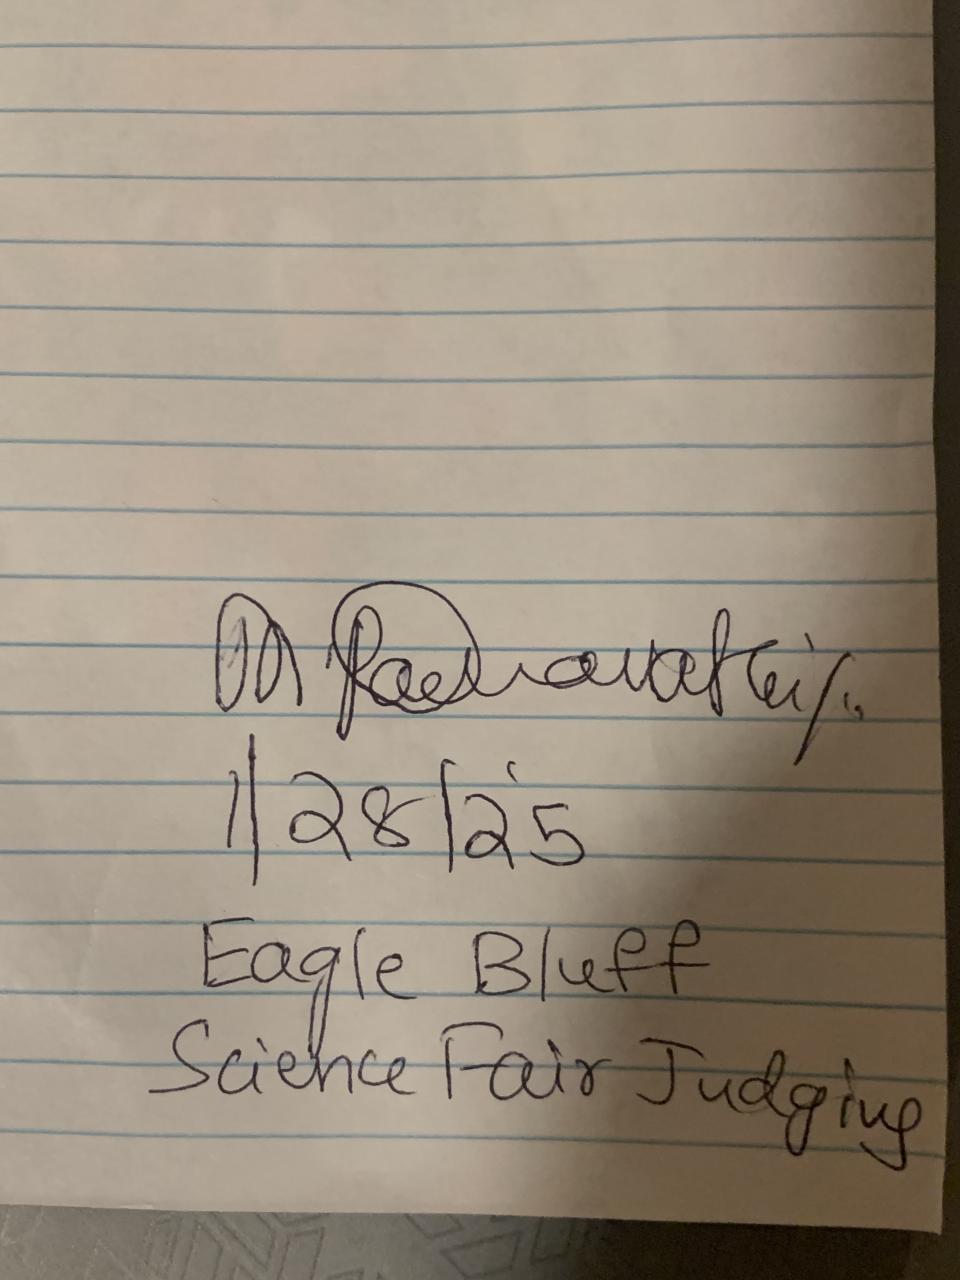 1/28/25
Eagle Bluff
Science Fair Judging